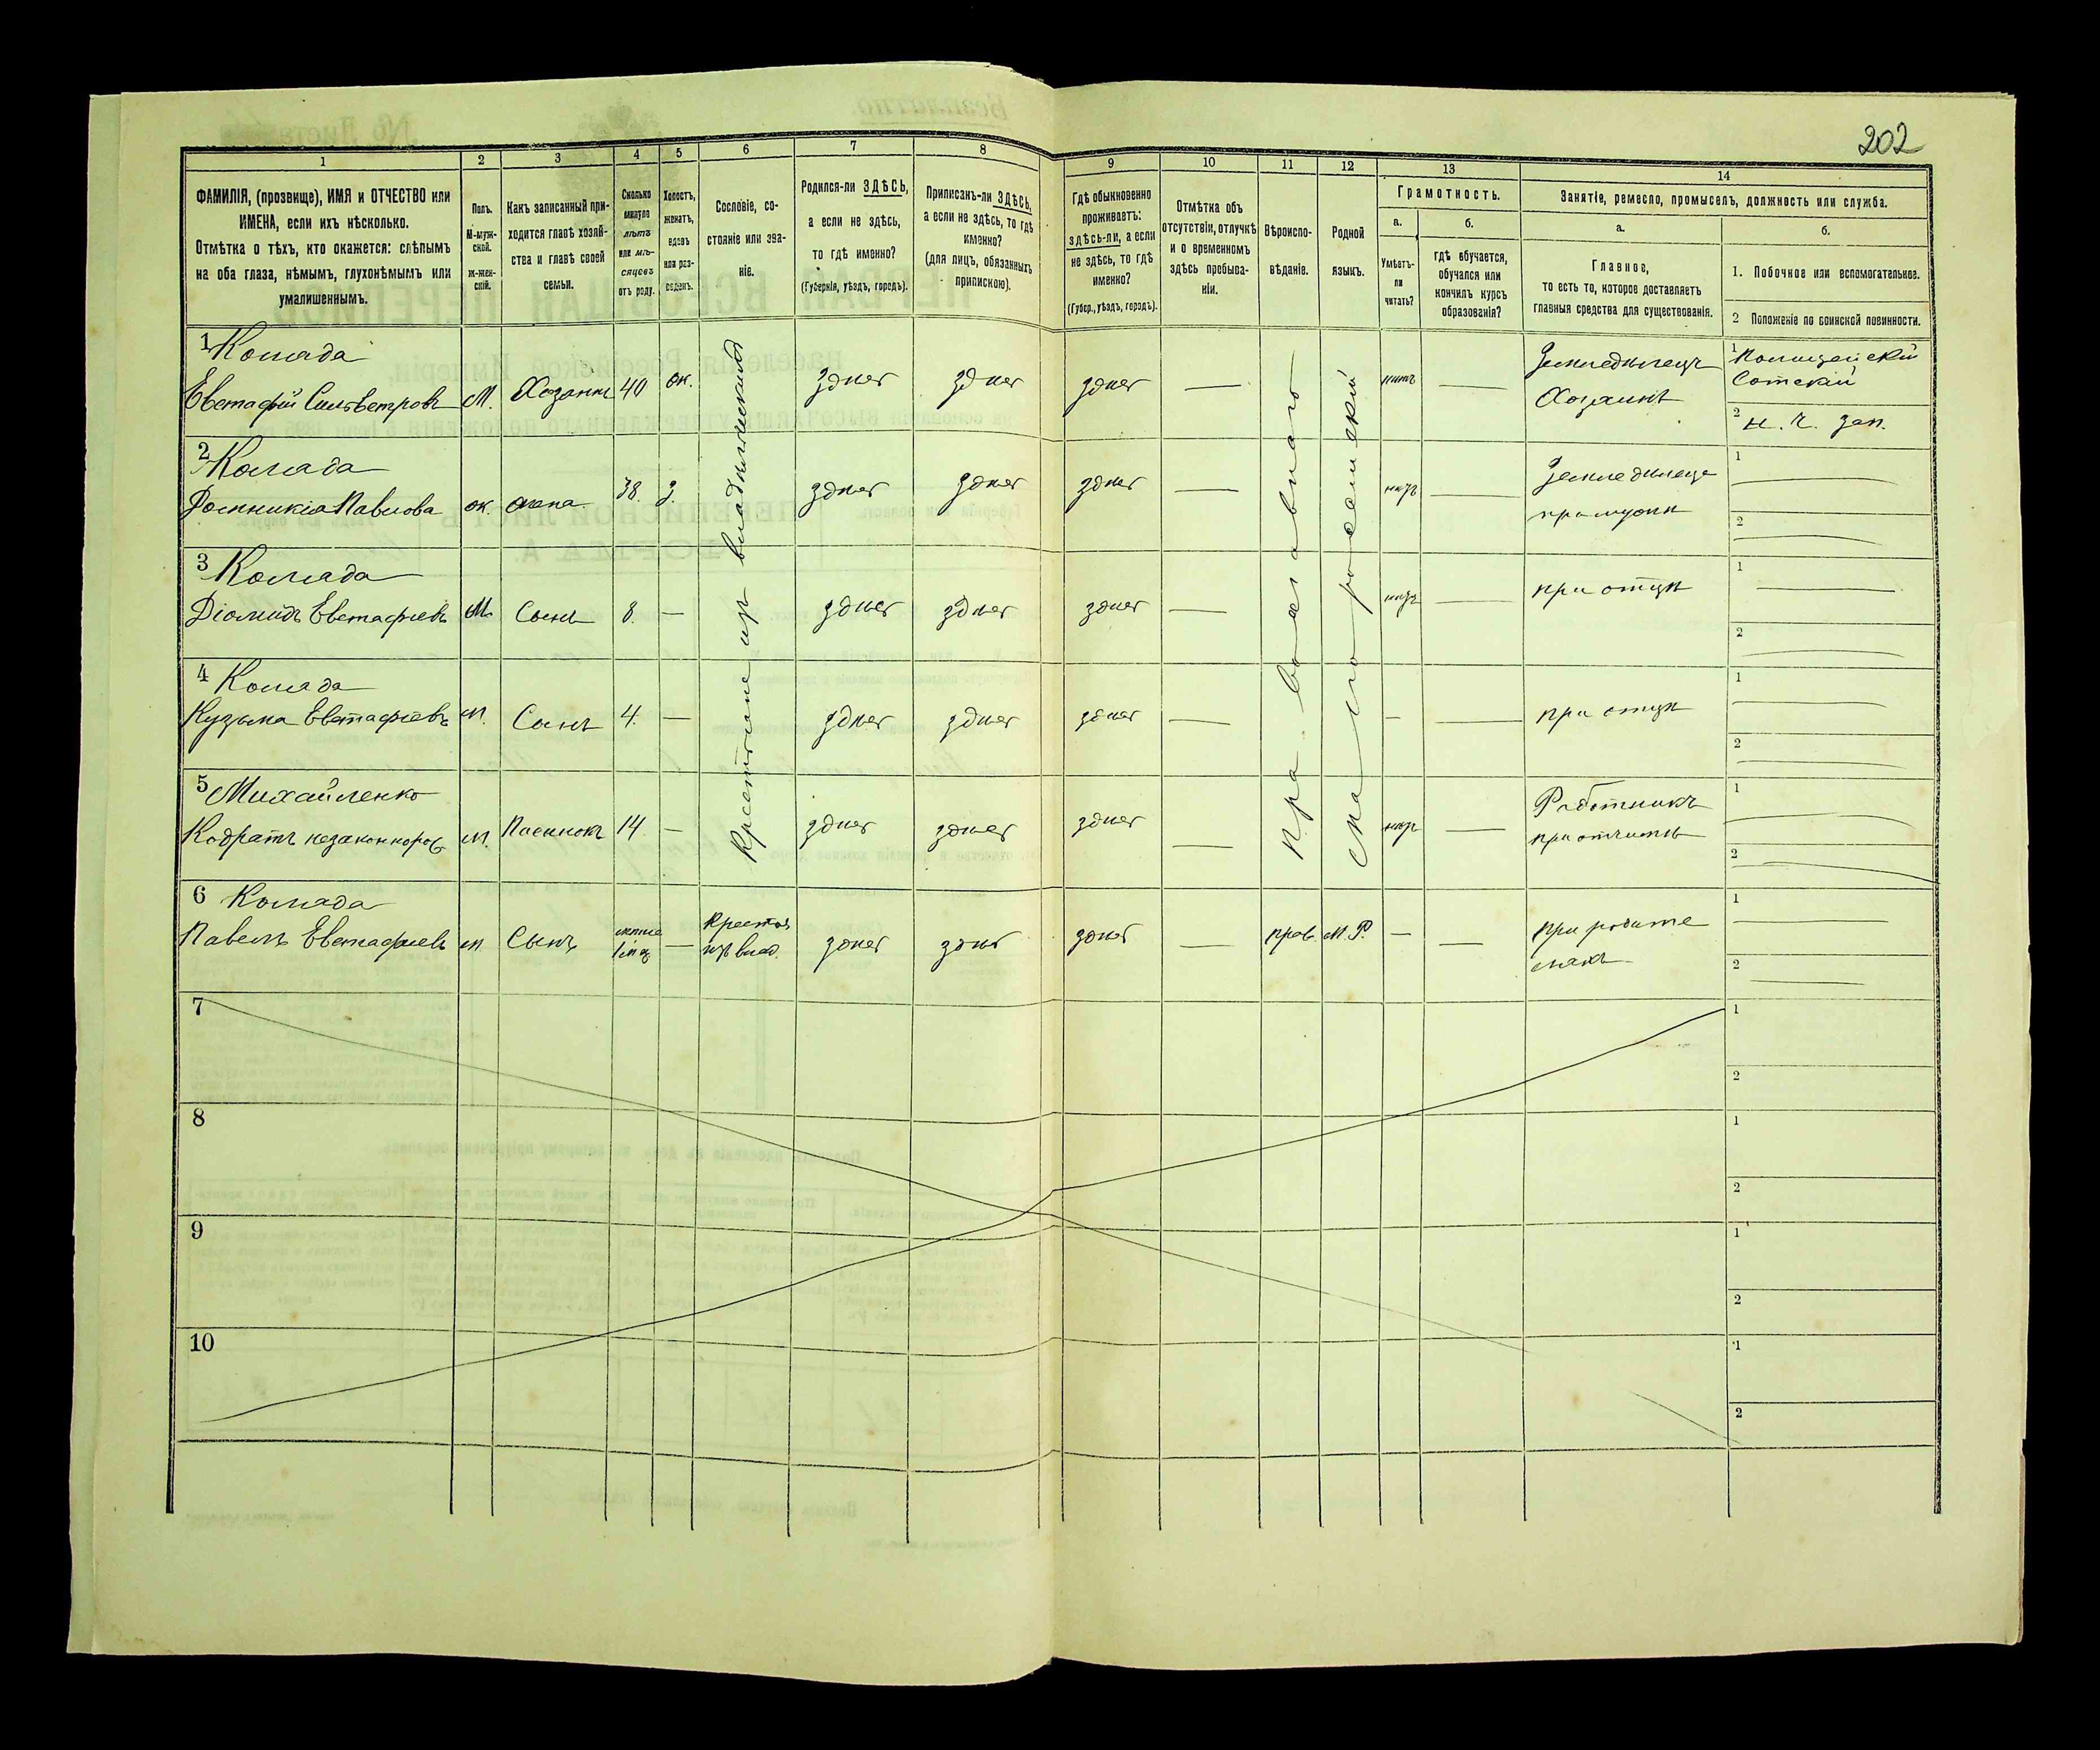 202
1
2
3
4
5
6
7
8
9
10
11
12
13
14
ФАМИЛІЯ, (прозвище), ИМЯ и ОТЧЕСТВО или
ИМЕНА, если ихъ нѣсколько.
Отмѣтка о тѣхъ, кто окажется: слѣпымъ
на оба глаза, нѣмымъ, глухонѣмымъ или
умалишеннымъ.
Полъ.
М-муж-
ской.
ж-жен-
скій.
Какъ записанный при-
ходится главѣ хозяй-
ства и главѣ своей
семьи.
Сколько
минуло
лѣтъ
или мѣ-
сяцевъ
отъ роду.
Холостъ,
женатъ,
вдовъ
или раз-
веденъ.
Сословіе, со-
стояніе или зва-
ніе.
Родился-ли ЗДѢСЬ,
а если не здѣсь,
то гдѣ именно?
(Губернія, уѣздъ, городъ).
Приписанъ-ли ЗДѢСЬ,
а если не здѣсь, то гдѣ
именно?
(для лицъ, обязанныхъ
припискою).
Гдѣ обыкновенно
проживаетъ:
здѣсь-ли, а если
не здѣсь, то гдѣ
именно?
(Губер., уѣздъ, городъ).
Отмѣтка объ
отсутствіи, отлучкѣ
и о временномъ
здѣсь пребыва-
ніи.
Вѣроиспо-
вѣданіе.
Родной
языкъ.
Грамотность.
а.
Умѣетъ-
ли
читать?
б.
гдѣ обучается,
обучался или
кончилъ курсъ
образованія?
Занятіе, ремесло, промыселъ, должность или служба.
а.
Главное,
то есть то, которое доставляетъ
главныя средства для существованія.
б.
1. Побочное или вспомогательное.
2 Положеніе по воинской повинности.
Крестьяне изъ владѣльческихъ
православного
малороссийский
1 Комада
Евстафій Сильвестровъ М. Хозяинъ 40 ж. здѣсь здѣсь здѣсь — нѣтъ —
Земледѣлецъ
Хозяинъ
1 Полицейскій
Сотскій
2 н. ч. зап.
2 Комада
Домникія Павлова ж. жена 38. з. здѣсь здѣсь здѣсь — нѣтъ —
Земледѣлецъ
при мужѣ
1
2
3 Комада
Діомидъ Евстафіевъ М. Сынъ 8. — здѣсь здѣсь здѣсь — нѣтъ —
при отцѣ
1
2
4 Комада
Кузьма Евстафіевъ м. Сынъ 4. — здѣсь здѣсь здѣсь — — —
при отцѣ
1
2
5 Михайленко
Кодратъ незаконнорож. м. Пасынокъ 14 — здѣсь здѣсь здѣсь — нѣтъ —
Работникъ
при отчимѣ
1
2
6 Комада
Павелъ Евстафіевъ м. Сынъ менѣе 1 мц. — Крестья изъ влад. здѣсь здѣсь здѣсь — прав. М.Р. — —
при родите
ляхъ
1
2
7
1
2
8
1
2
9
1
2
10
1
2